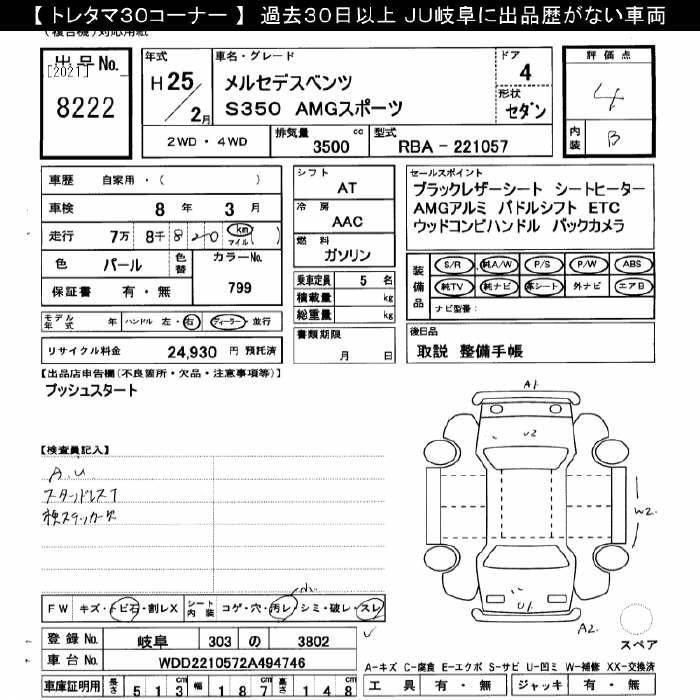 【 トレタマ30コーナー 】 過去30日以上 JU岐阜に出品歴がない車両
(複合機)対応用紙
出品No.
[2021]
8222
年式
H 25 / 2月
車名・グレード
メルセデスベンツ
S350 AMGスポーツ
ドア
4
形状
セダン
評価点
4
内装
B
2WD・4WD
排気量
3500 cc
型式
RBA - 221057
車歴 自家用・( )
車検 8 年 3 月
走行 7万 8千 820 km マイル ( )
色 パール 色替
カラーNo.
799
保証書 有・無
モデル年式 年 ハンドル 左・右 ディーラー・並行
リサイクル料金 24,930 円 預託済
シフト
AT
冷房
AAC
燃料
ガソリン
乗車定員 5 名
積載量 kg
総重量 kg
書類期限
月 日
セールスポイント
ブラックレザーシート シートヒーター
AMGアルミ パドルシフト ETC
ウッドコンビハンドル バックカメラ
装備品
S/R 純A/W P/S P/W ABS
純TV 純ナビ 革シート 外ナビ エアB
ナビ型番:
後日品
取説 整備手帳
【出品店申告欄(不良箇所・欠品・注意事項等)】
プッシュスタート
【検査員記入】
A.U
スタッドレス
検ステッカー欠
A1
U2
W2
U1
A2
スペア
FW キズ・トビ石・割レX シート内装 コゲ・穴・汚レ・シミ・破レ・スレ
登録No. 岐阜 303 の 3802
車台No. WDD2210572A494746
車庫証明用 長さ 513 幅 187 高さ 148
A-キズ C-腐食 E-エクボ S-サビ U-凹ミ W-補修 XX-交換済
工具 有・無 ジャッキ 有・無